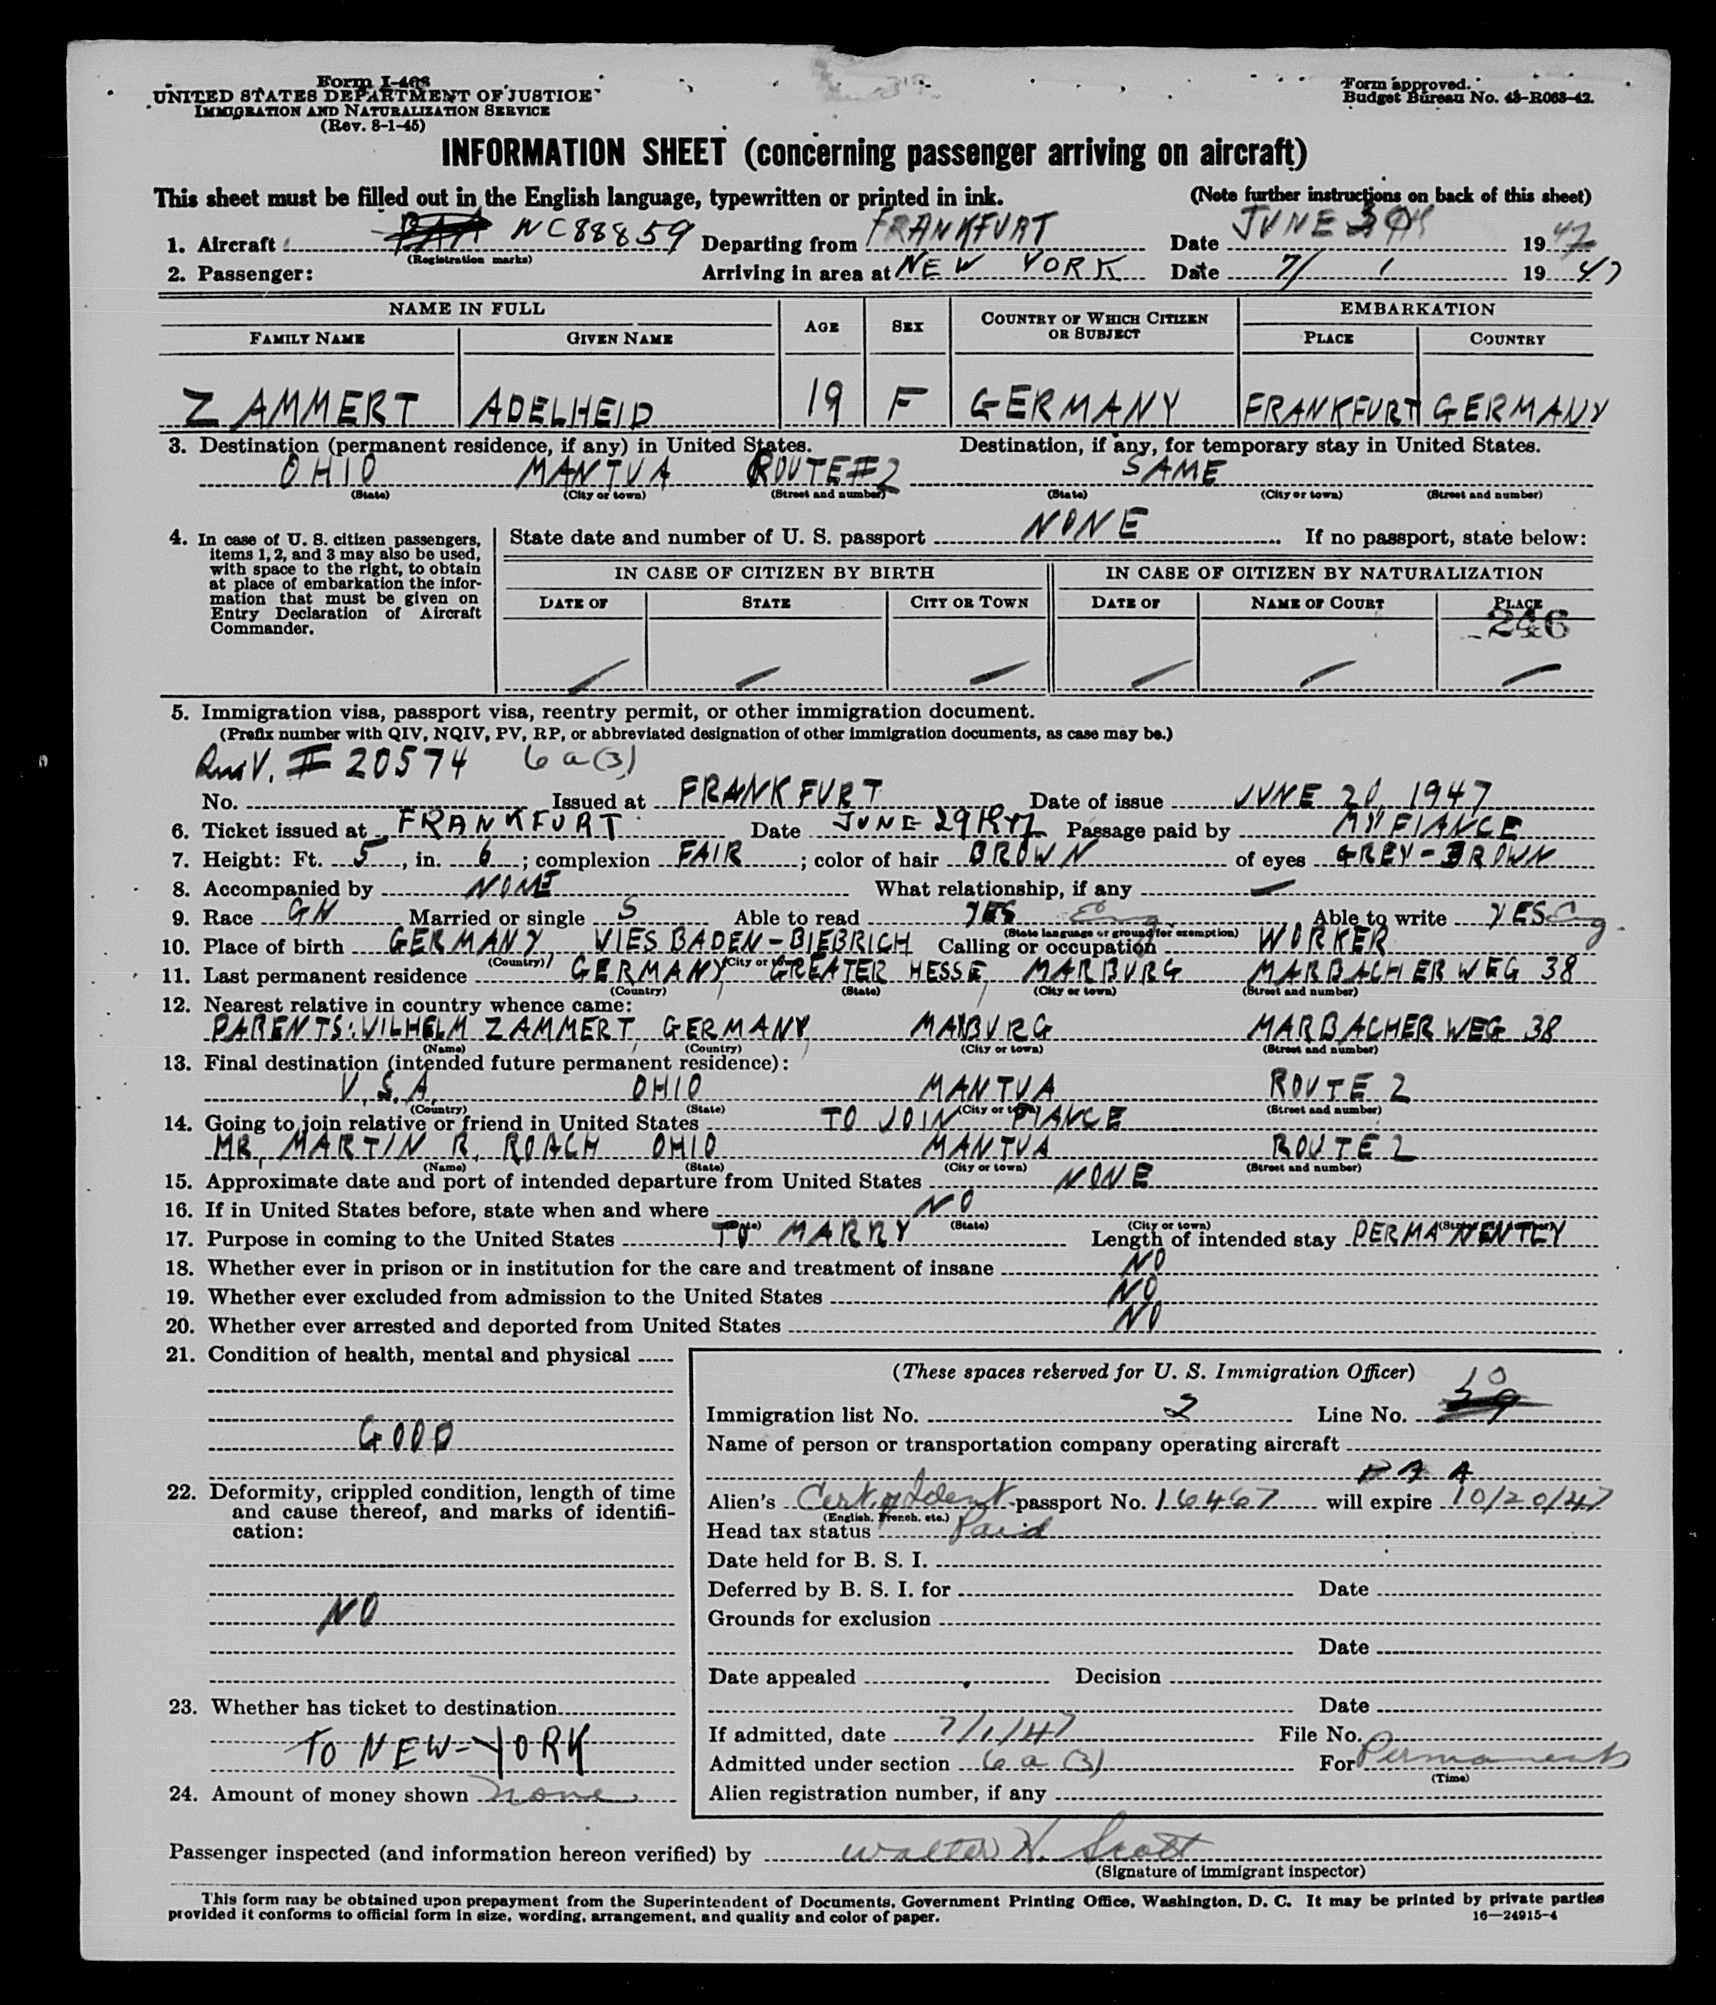 Form I-466
UNITED STATES DEPARTMENT OF JUSTICE
IMMIGRATION AND NATURALIZATION SERVICE
(Rev. 8-1-45)
Form approved.
Budget Bureau No. 43-R063-42.
INFORMATION SHEET (concerning passenger arriving on aircraft)
This sheet must be filled out in the English language, typewritten or printed in ink. (Note further instructions on back of this sheet)
1. Aircraft PAA NC88859 Departing from FRANKFURT Date JUNE 1947
(Registration marks)
2. Passenger: Arriving in area at NEW YORK Date 7/ 1 1947
NAME IN FULL AGE SEX COUNTRY OF WHICH CITIZEN OR SUBJECT EMBARKATION
FAMILY NAME GIVEN NAME PLACE COUNTRY
ZAMMERT ADELHEID 19 F GERMANY FRANKFURT GERMANY
3. Destination (permanent residence, if any) in United States. Destination, if any, for temporary stay in United States.
OHIO MANTUA ROUTE #2 SAME
(State) (City or town) (Street and number) (State) (City or town) (Street and number)
4. In case of U. S. citizen passengers, items 1, 2, and 3 may also be used, with space to the right, to obtain at place of embarkation the information that must be given on Entry Declaration of Aircraft Commander.
State date and number of U. S. passport NONE If no passport, state below:
IN CASE OF CITIZEN BY BIRTH IN CASE OF CITIZEN BY NATURALIZATION
DATE OF STATE CITY OR TOWN DATE OF NAME OF COURT PLACE
246
5. Immigration visa, passport visa, reentry permit, or other immigration document.
(Prefix number with QIV, NQIV, PV, RP, or abbreviated designation of other immigration documents, as case may be.)
V. # 20574 6a(3)
No. Issued at FRANKFURT Date of issue JUNE 20, 1947
6. Ticket issued at FRANKFURT Date JUNE 29 1947 Passage paid by MY FIANCE
7. Height: Ft. 5, in. 6; complexion FAIR; color of hair BROWN of eyes GREY-BROWN
8. Accompanied by NONE What relationship, if any —
9. Race GN Married or single S Able to read YES Eng Able to write YES Eng.
(State language or ground for exemption)
10. Place of birth GERMANY WIESBADEN-BIEBRICH Calling or occupation WORKER
(Country) (City or town)
11. Last permanent residence GERMANY, GREATER HESSE, MARBURG MARBACHER WEG 38
(Country) (State) (City or town) (Street and number)
12. Nearest relative in country whence came:
PARENTS: WILHELM ZAMMERT, GERMANY, MARBURG MARBACHER WEG 38
(Name) (Country) (City or town) (Street and number)
13. Final destination (intended future permanent residence):
U.S.A. OHIO MANTUA ROUTE 2
(Country) (State) (City or town) (Street and number)
14. Going to join relative or friend in United States TO JOIN FIANCE
MR, MARTIN R. ROACH OHIO MANTUA ROUTE 2
(Name) (State) (City or town) (Street and number)
15. Approximate date and port of intended departure from United States NONE
16. If in United States before, state when and where NO
(State) (City or town)
17. Purpose in coming to the United States TO MARRY Length of intended stay PERMANENTLY
18. Whether ever in prison or in institution for the care and treatment of insane NO
19. Whether ever excluded from admission to the United States NO
20. Whether ever arrested and deported from United States NO
21. Condition of health, mental and physical
GOOD
22. Deformity, crippled condition, length of time and cause thereof, and marks of identification:
NO
23. Whether has ticket to destination
TO NEW-YORK
24. Amount of money shown none
(These spaces reserved for U. S. Immigration Officer)
Immigration list No. 2 Line No. 10
Name of person or transportation company operating aircraft
PAA
Alien's Cert. of Ident. passport No. 16467 will expire 10/20/47
(English, French, etc.)
Head tax status Paid
Date held for B. S. I.
Deferred by B. S. I. for Date
Grounds for exclusion
Date
Date appealed Decision
Date
If admitted, date 7/1/47 File No.
Admitted under section 6a(3) For Permanent
(Time)
Alien registration number, if any
Passenger inspected (and information hereon verified) by Walter H. Scott
(Signature of immigrant inspector)
This form may be obtained upon prepayment from the Superintendent of Documents, Government Printing Office, Washington, D. C. It may be printed by private parties
provided it conforms to official form in size, wording, arrangement, and quality and color of paper. 16—24915-4